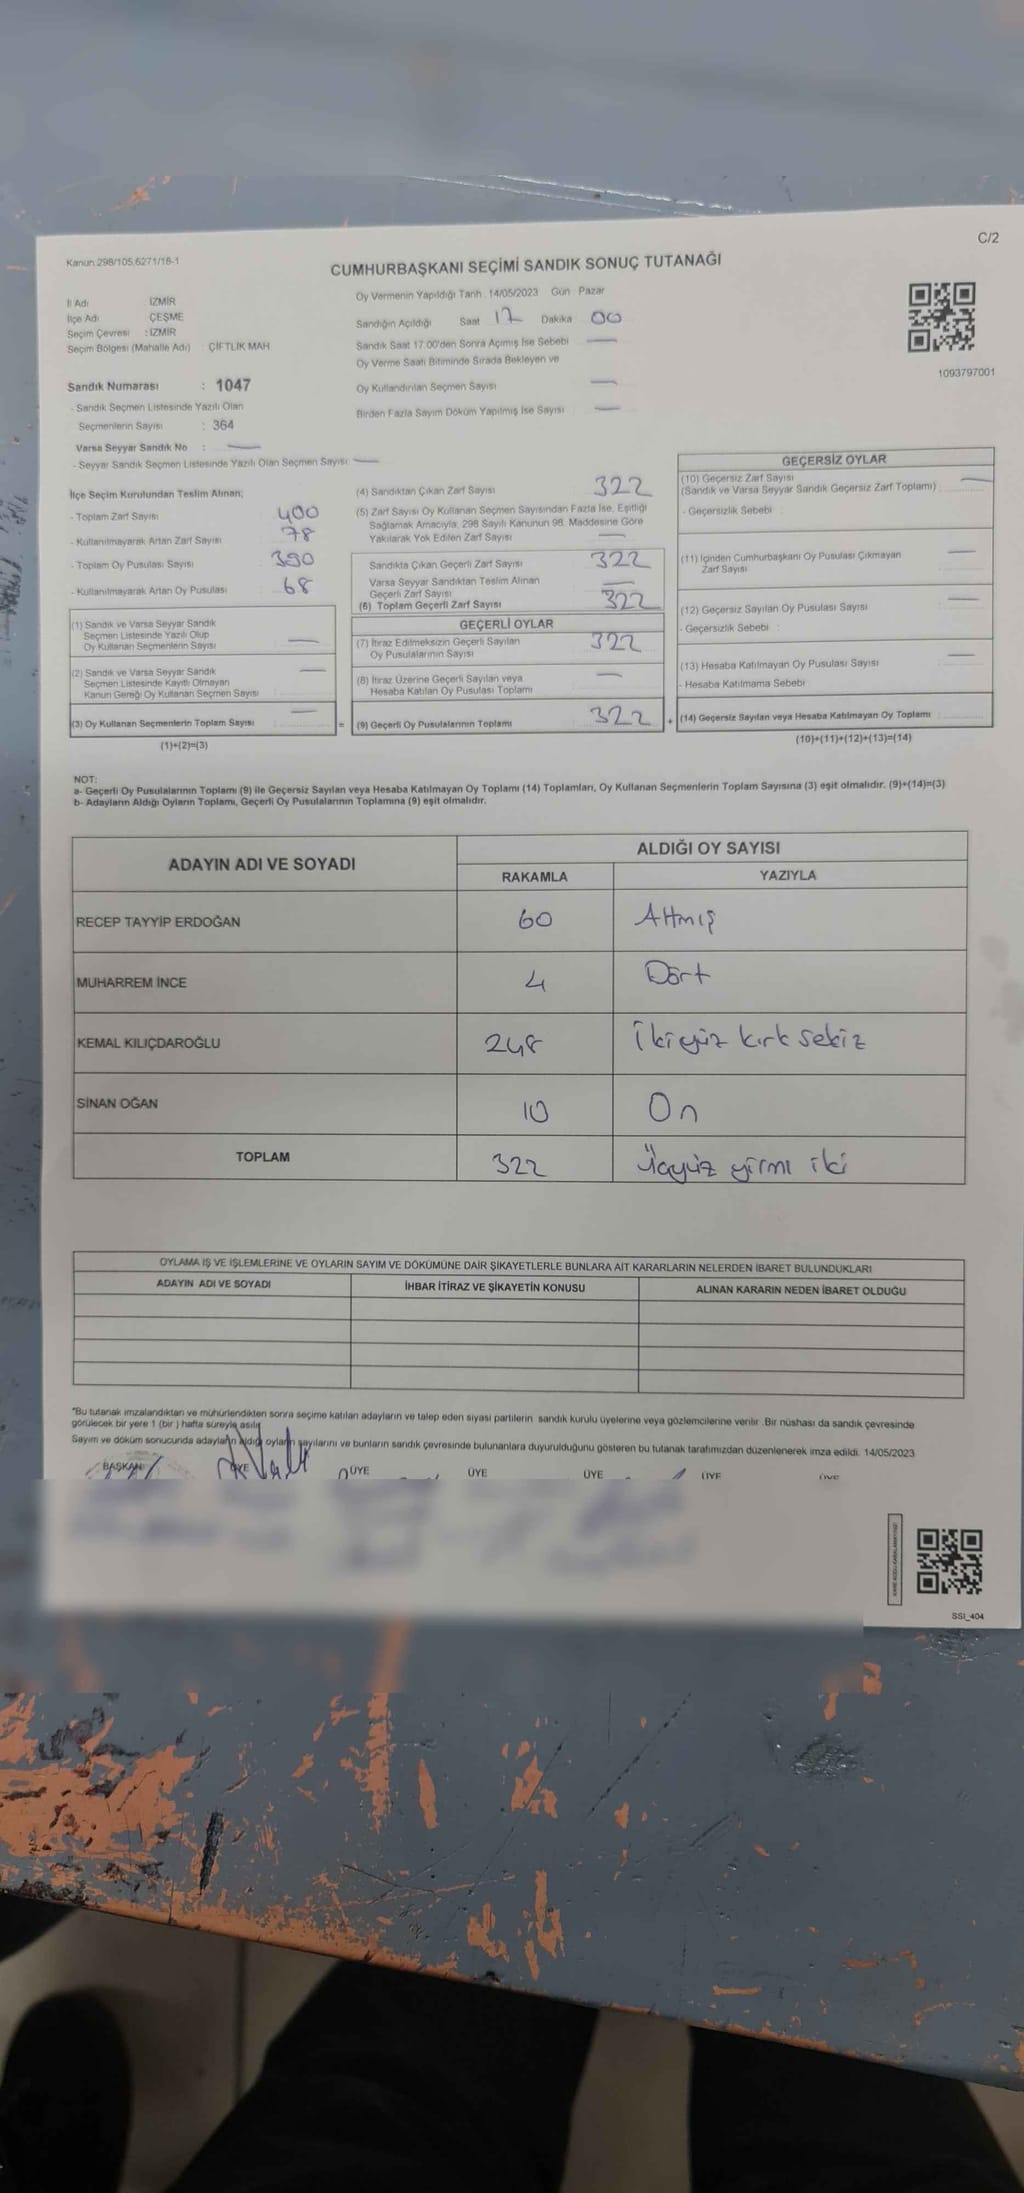 C/2
Kanun:298/105,6271/18-1
CUMHURBAŞKANI SEÇİMİ SANDIK SONUÇ TUTANAĞI
İl Adı İZMİR
İlçe Adı ÇEŞME
Seçim Çevresi : İZMİR
Seçim Bölgesi (Mahalle Adı) ÇİFTLİK MAH
Oy Vermenin Yapıldığı Tarih : 14/05/2023 Gün Pazar
Sandığın Açıldığı Saat 17 Dakika 00
Sandık Saat 17.00'den Sonra Açımış İse Sebebi —
Oy Verme Saati Bitiminde Sırada Bekleyen ve
Oy Kullandırılan Seçmen Sayısı —
Birden Fazla Sayım Döküm Yapılmış İse Sayısı —
1093797001
Sandık Numarası : 1047
- Sandık Seçmen Listesinde Yazılı Olan
Seçmenlerin Sayısı : 364
Varsa Seyyar Sandık No : —
- Seyyar Sandık Seçmen Listesinde Yazılı Olan Seçmen Sayısı —
İlçe Seçim Kurulundan Teslim Alınan;
- Toplam Zarf Sayısı 400
- Kullanılmayarak Artan Zarf Sayısı 78
- Toplam Oy Pusulası Sayısı 390
- Kullanılmayarak Artan Oy Pusulası 68
(1) Sandık ve Varsa Seyyar Sandık
Seçmen Listesinde Yazılı Olup
Oy Kullanan Seçmenlerin Sayısı —
(2) Sandık ve Varsa Seyyar Sandık
Seçmen Listesinde Kayıtlı Olmayan
Kanun Gereği Oy Kullanan Seçmen Sayısı —
(3) Oy Kullanan Seçmenlerin Toplam Sayısı —
(1)+(2)=(3)
(4) Sandıktan Çıkan Zarf Sayısı 322
(5) Zarf Sayısı Oy Kullanan Seçmen Sayısından Fazla İse, Eşitliği
Sağlamak Amacıyla, 298 Sayılı Kanunun 98. Maddesine Göre
Yakılarak Yok Edilen Zarf Sayısı —
Sandıkta Çıkan Geçerli Zarf Sayısı 322
Varsa Seyyar Sandıktan Teslim Alınan
Geçerli Zarf Sayısı —
(6) Toplam Geçerli Zarf Sayısı 322
GEÇERLİ OYLAR
(7) İtiraz Edilmeksizin Geçerli Sayılan
Oy Pusulalarının Sayısı 322
(8) İtiraz Üzerine Geçerli Sayılan veya
Hesaba Katılan Oy Pusulası Toplamı —
= (9) Geçerli Oy Pusulalarının Toplamı 322
GEÇERSİZ OYLAR
(10) Geçersiz Zarf Sayısı
(Sandık ve Varsa Seyyar Sandık Geçersiz Zarf Toplamı) —
- Geçersizlik Sebebi :
(11) İçinden Cumhurbaşkanı Oy Pusulası Çıkmayan
Zarf Sayısı —
(12) Geçersiz Sayılan Oy Pusulası Sayısı —
- Geçersizlik Sebebi :
(13) Hesaba Katılmayan Oy Pusulası Sayısı —
- Hesaba Katılmama Sebebi
+ (14) Geçersiz Sayılan veya Hesaba Katılmayan Oy Toplamı —
(10)+(11)+(12)+(13)=(14)
NOT:
a- Geçerli Oy Pusulalarının Toplamı (9) ile Geçersiz Sayılan veya Hesaba Katılmayan Oy Toplamı (14) Toplamları, Oy Kullanan Seçmenlerin Toplam Sayısına (3) eşit olmalıdır. (9)+(14)=(3)
b- Adayların Aldığı Oyların Toplamı, Geçerli Oy Pusulalarının Toplamına (9) eşit olmalıdır.
ADAYIN ADI VE SOYADI ALDIĞI OY SAYISI
RAKAMLA YAZIYLA
RECEP TAYYİP ERDOĞAN 60 Altmış
MUHARREM İNCE 4 Dört
KEMAL KILIÇDAROĞLU 248 İkiyüz kırk sekiz
SİNAN OĞAN 10 On
TOPLAM 322 Üçyüz yirmi iki
OYLAMA İŞ VE İŞLEMLERİNE VE OYLARIN SAYIM VE DÖKÜMÜNE DAİR ŞİKAYETLERLE BUNLARA AİT KARARLARIN NELERDEN İBARET BULUNDUKLARI
ADAYIN ADI VE SOYADI İHBAR İTİRAZ VE ŞİKAYETİN KONUSU ALINAN KARARIN NEDEN İBARET OLDUĞU
"Bu tutanak imzalandıktan ve mühürlendikten sonra seçime katılan adayların ve talep eden siyasi partilerin sandık kurulu üyelerine veya gözlemcilerine verilir. Bir nüshası da sandık çevresinde
görülecek bir yere 1 (bir ) hafta süreyle asılır
Sayım ve döküm sonucunda adayların aldığı oyların sayılarını ve bunların sandık çevresinde bulunanlara duyurulduğunu gösteren bu tutanak tarafımızdan düzenlenerek imza edildi. 14/05/2023
BAŞKAN ÜYE ÜYE ÜYE ÜYE ÜYE ÜYE
SSI_404